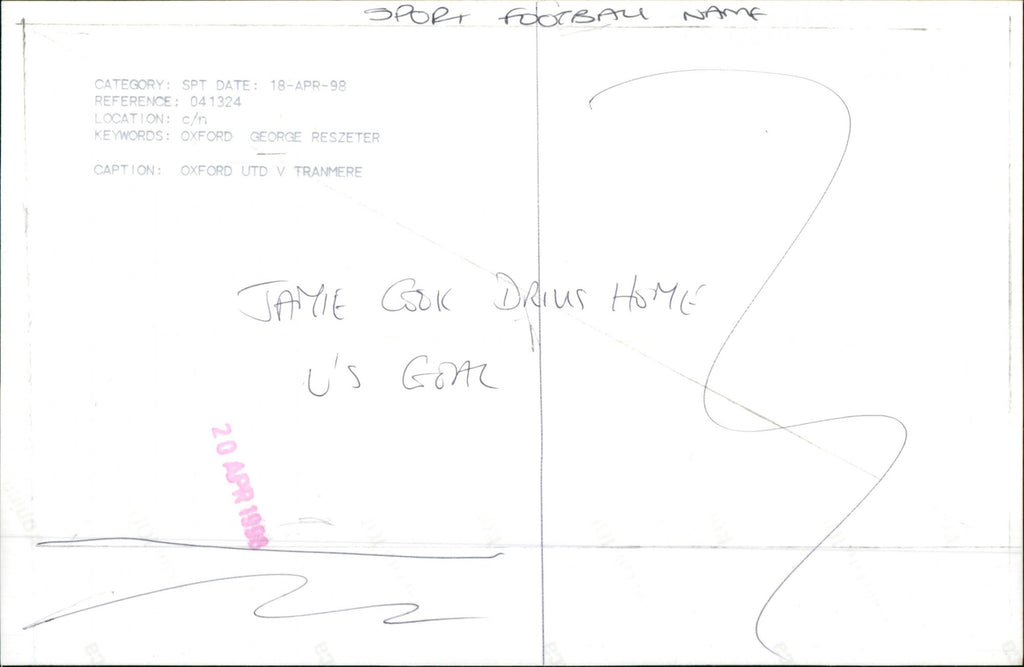 SPORT FOOTBALL NAME
CATEGORY: SPT DATE: 18-APR-98
REFERENCE: 041324
LOCATION: c/n
KEYWORDS: OXFORD GEORGE RESZETER
CAPTION: OXFORD UTD V TRANMERE
JAMIE COOK DRIVES HOME
U'S GOAL
20 APR 1998